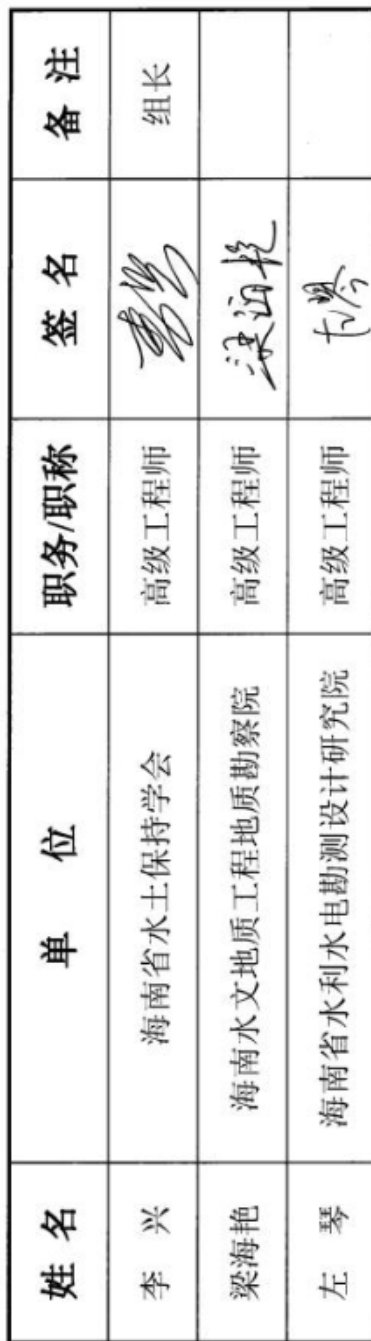 姓 名 单 位 职务/职称 签 名 备 注
李 兴 海南省水土保持学会 高级工程师 组长
梁海艳 海南水文地质工程地质勘察院 高级工程师 梁海艳
左 琴 海南省水利水电勘测设计研究院 高级工程师 左琴